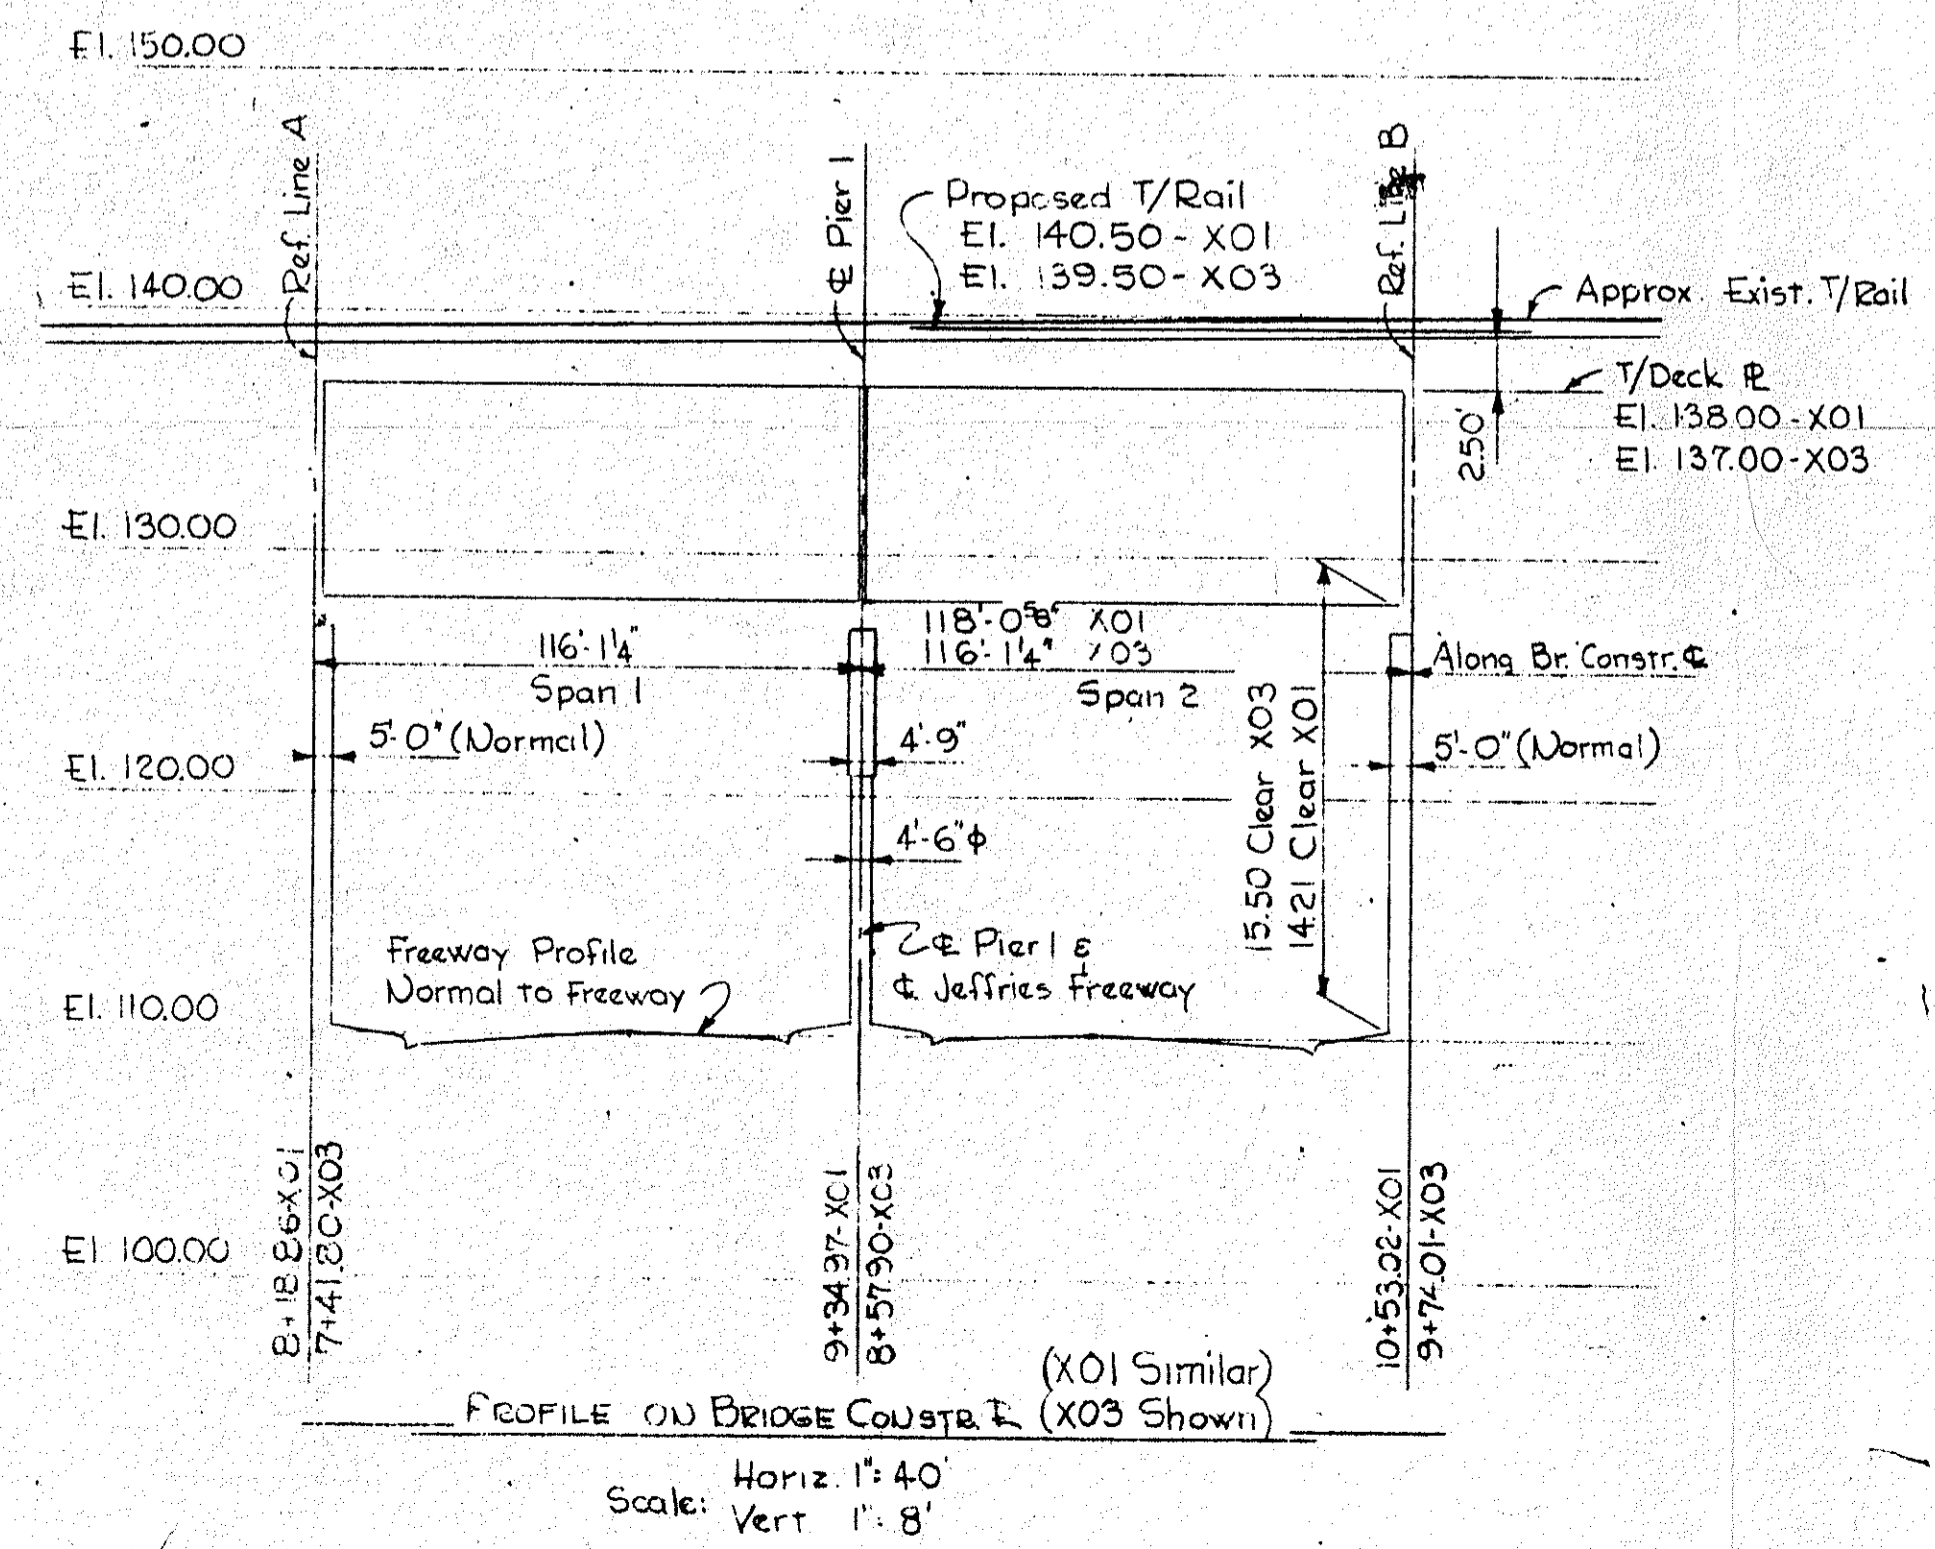 El. 150.00
Ref. Line A
℄ Pier 1
Ref. Line B
Proposed T/Rail
El. 140.50 - X01
El. 139.50 - X03
El. 140.00
Approx. Exist. T/Rail
T/Deck PL
El. 138.00 - X01
El. 137.00 - X03
2.50'
El. 130.00
116'-1¼"
Span 1
118'-0⅝" X01
116'-1¼" X03
Span 2
Along Br. Constr. ℄
5'-0" (Normal)
4'-9"
5'-0" (Normal)
15.50 Clear X03
14.21 Clear X01
El. 120.00
4'-6" ϕ
Freeway Profile
Normal to Freeway
℄ Pier 1 &
℄ Jeffries Freeway
El. 110.00
8+18.86-X01
7+41.80-X03
9+34.97-X01
8+57.90-X03
10+53.02-X01
9+74.01-X03
El. 100.00
PROFILE ON BRIDGE CONSTR. ℄
(X01 Similar)
(X03 Shown)
Scale:
Horiz. 1": 40'
Vert 1": 8'